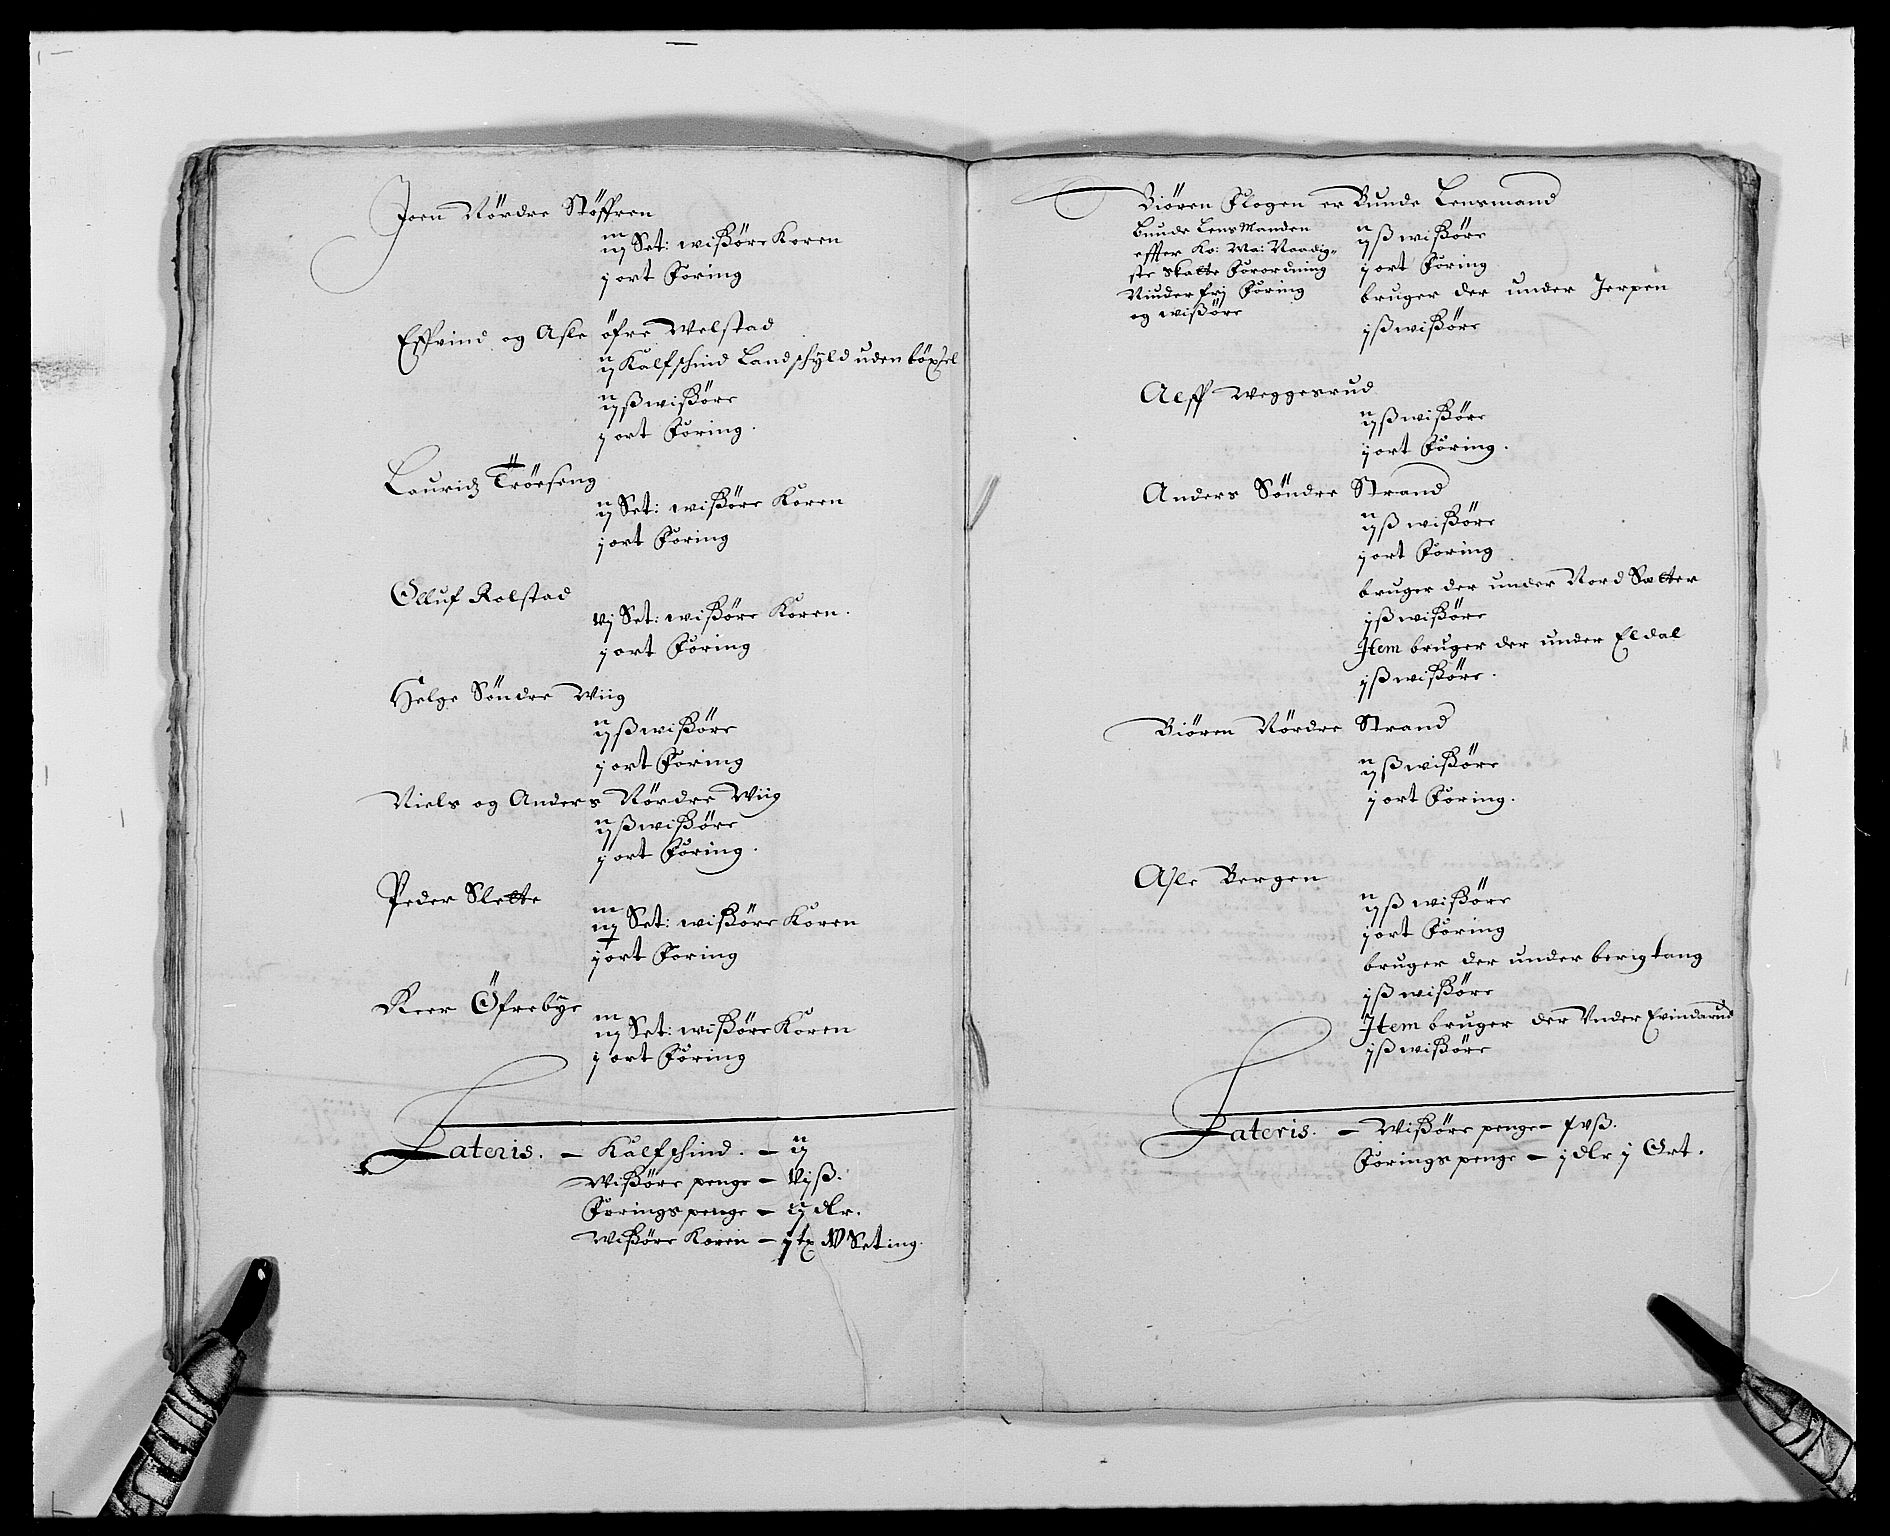 Joen Nördre Stöffren
iij Set: wißöre Koren
j ort Foring
Effvind og Asle öfre Welstad
ij Kalfschind Landschyld uden böxsel
ij ß wißöre
j ort Foring.
Lauridz Tröeseng
ij Set: wißöre Koren
j ort Foring
Olluf Rolstad
vj Set: wißöre Koren.
j ort Foring
Helge Söndre Wiig
ij ß wißöre
j ort Foring
Niels og Anders Nördre Wiig
ij ß wißöre
j ort Foring.
Peder Slette
Set: wißöre Koren
j ort Foring
Reer Öfrebye
iij Set: wißöre Koren
j ort Foring
Lateris. – Kalfschind. – ij
Wißöre penge – vj ß.
Forings penge – ij dlr.
Wißöre Koren – Seting.
Biören Flogen er Bunde Lensmand
Bunde Lens Manden
effter Ko: Ma: Naadig-
ste Skatte Forordning
Niuder frj Foring
og wißöre
ij ß wißöre
j ort Foring
bruger der under Jerpen
j ß wißöre
Aleff Weggesrud
ij ß wißöre
j ort Foring.
Anders Söndre Strand
ij ß wißöre
j ort Foring
bruger der under Nord Sætter
j ß wißöre
Item bruger der under Eldal
j ß wißöre.
Biören Nördre Strand
ij ß wißöre
j ort Foring.
Asle Bergen
ij ß wißöre
j ort Foring
bruger der under berigtang
j ß wißöre
Item bruger der Vnder Evindarud
j ß wißöre
Lateris. – Wißöre penge – ß.
Forings penge – j dlr j Ort.